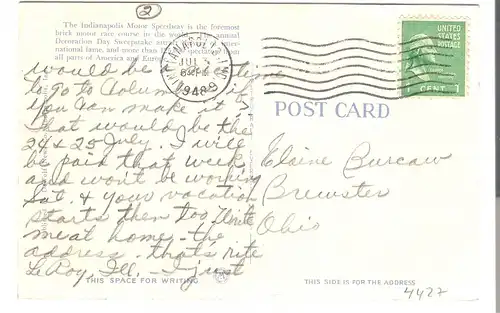 2
The Indianapolis Motor Speedway is the foremost
brick motor race course in the world. The annual
Decoration Day Sweepstake
all parts of America and Europe
UNITED
STATES
POSTAGE
1 CENT 1
JUL
1948
POST CARD
would be time
to go to Columbus if
you can make it.
That would be the
24 & 25 July. I will
be paid that week
and won't be working
Sat. & your vacation
starts then too. Write
me at home - the
address - that's rite
LeRoy, Ill. - I just
Elaine Burcaw
Brewster
Ohio
THIS SPACE FOR WRITING
THIS SIDE IS FOR THE ADDRESS
4427